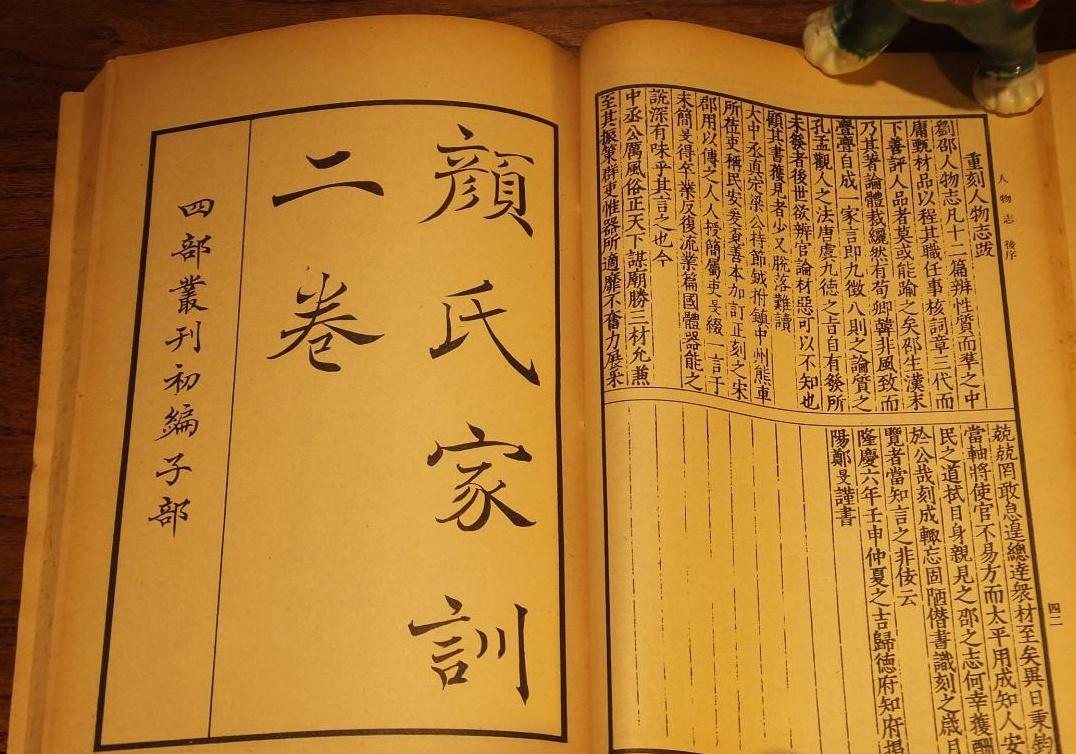 人物志 後序
四二
重刻人物志跋
劉邵人物志凡十二篇辨性質而準之中
庸甄材品以程其職任事核詞章三代而
下善評人品者莫或能踰之矣邵生漢末
乃其著論體裁纚然有荀卿韓非風致而
亹亹自成一家言即九徵八則之論質之
孔孟觀人之法唐虞九德之旨自有發所
未發者後世欲辨官論材惡可以不知也
顧其書獲見者少又脫落難讀
大中丞真定梁公持節鉞拊鎮中州熊車
所蒞吏稱民安爰覓善本加訂正刻之宋
郡用以傳之人人授簡屬吏旻綴一言于
末簡旻得卒業反後流業篇國體器能之
說深有味乎其言之也今
中丞公厲風俗正天下謀廟勝三材允兼
至其振策群吏惟器所適靡不奮力展采
兢兢罔敢怠遑總達衆材至矣異日秉鈞
當軸將使官不易方而太平用成知人安
民之道拭目身親見之邵之志何幸獲酬
於公哉刻成輙忘固陋僭書識刻之歲月
覽者當知言之非佞云
隆慶六年壬申仲夏之吉歸德府知府揭
陽鄭旻謹書
顏氏家訓
二卷
四部叢刊初編子部